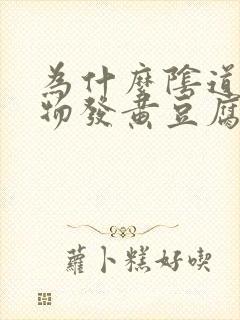 為什麼陰道
物發黃豆腐
蘿卜糕好喫